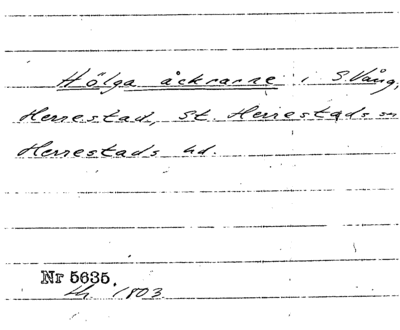 Hölga åckrarne i S. Vång,
Herrestad, St. Herrestads sn
Herrestads hd.
Nr 5635.
1803